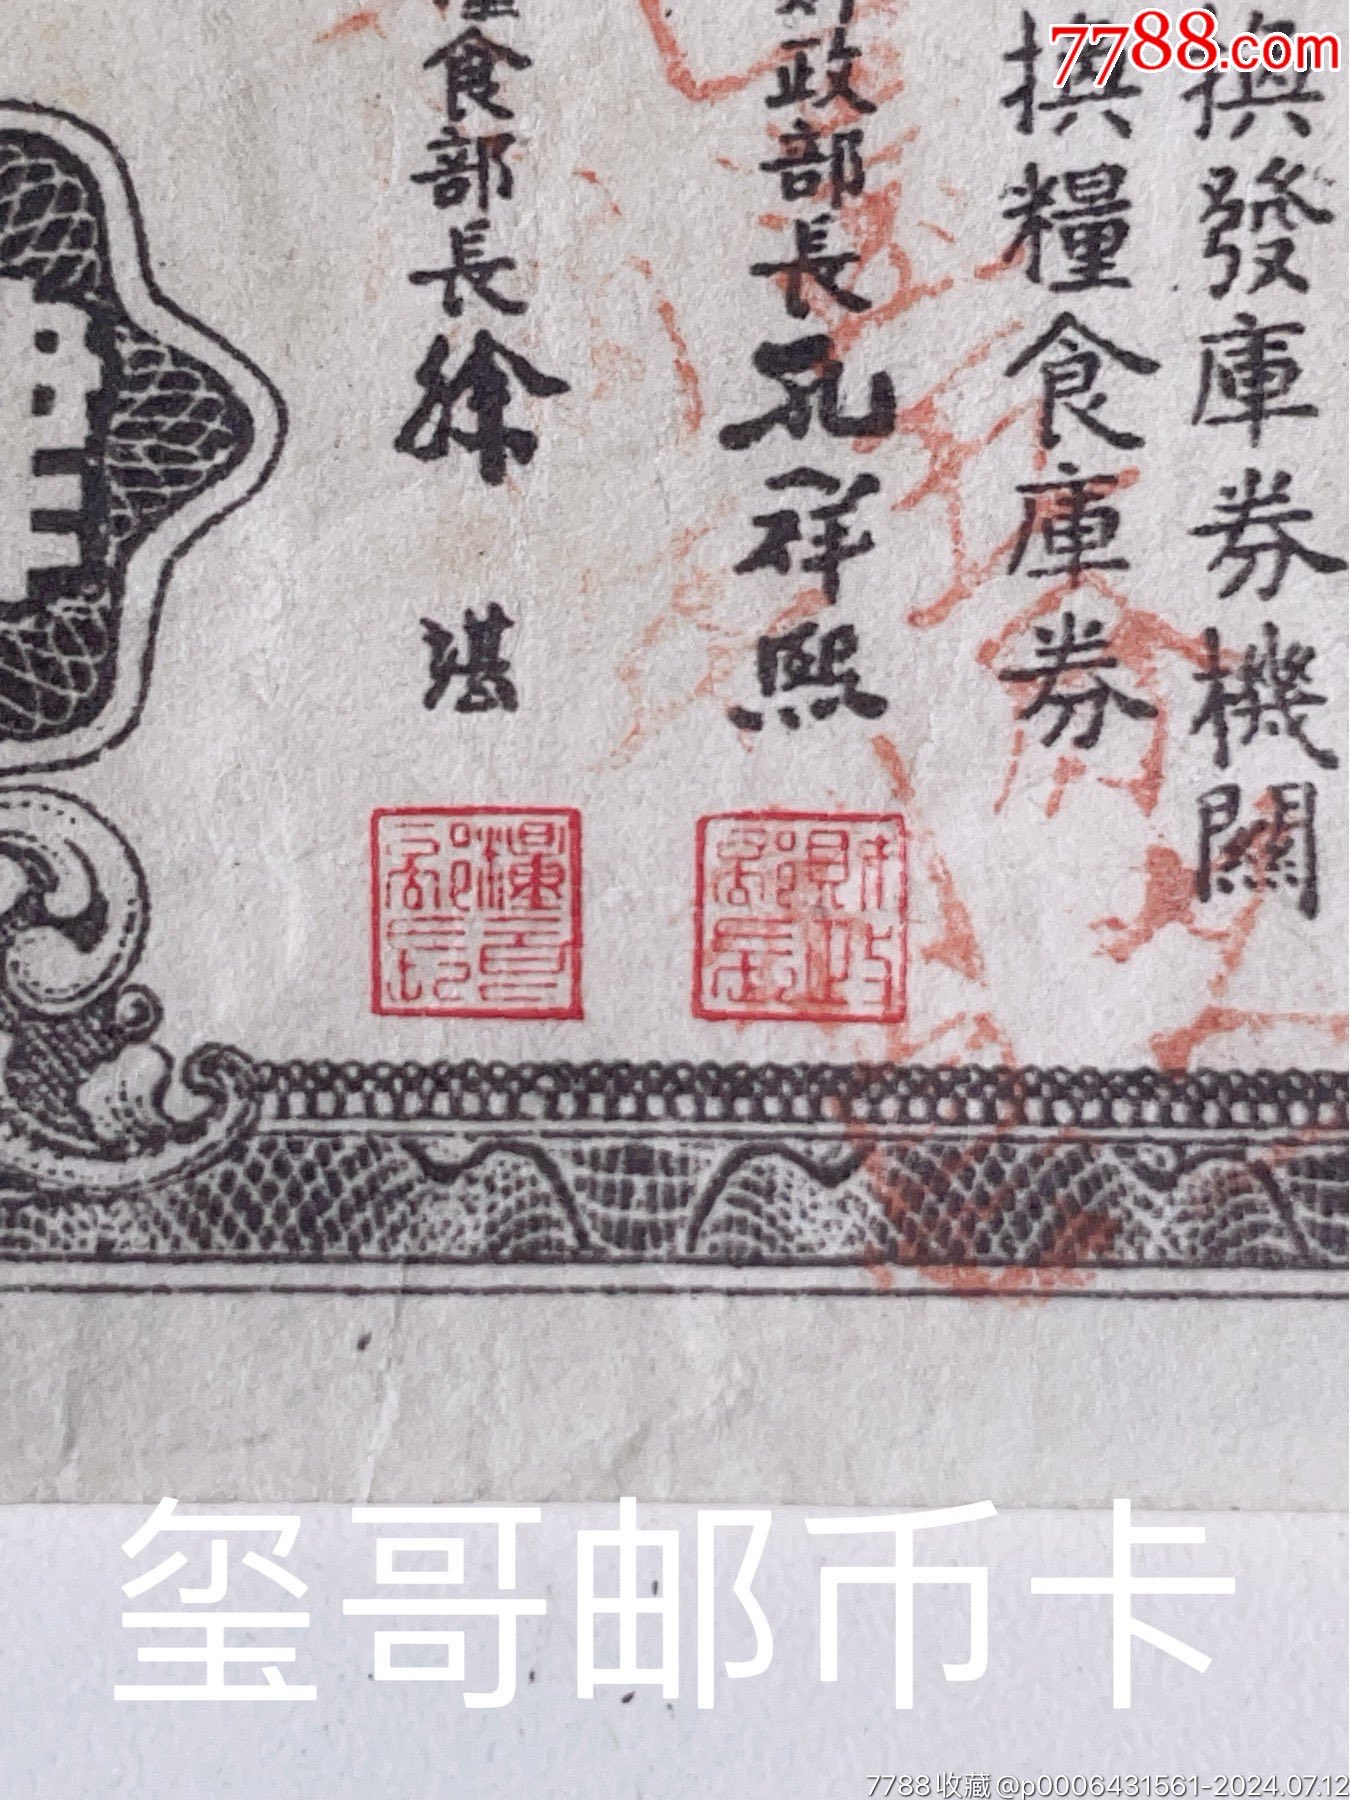 7788.com
撫發庫券機關
撫糧食庫券
政部長孔祥熙
食部長徐堪
玺哥邮币卡
7788收藏@p0006431561-2024.07.12